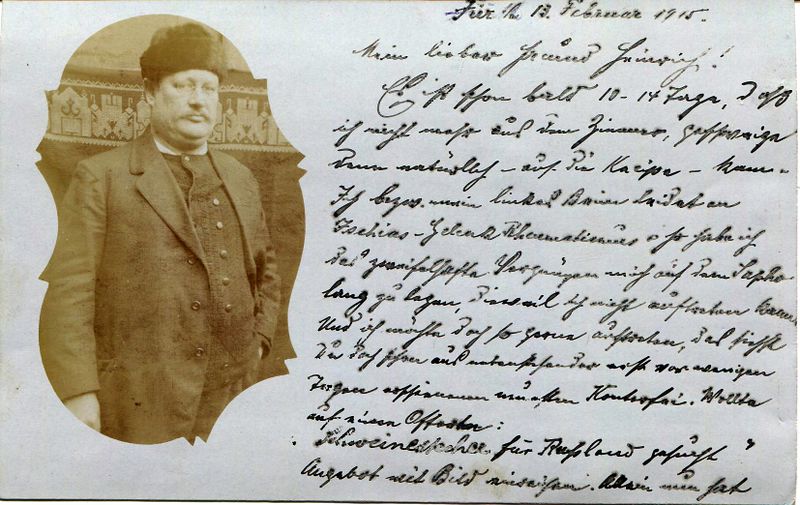 13. Februar 1915.
Mein lieber Freund Heinrich!
Es ist schon bald 10-14 Tage, daß
ich nicht mehr aus dem Zimmer, geschweige
denn natürlich - auf die Kneipe - kam.
Ich bezw. mein linkes Bein leidet an
Ischias-Gelenk Rheumatismus so habe ich
das zweifelhafte Vergnügen mich auf dem Sopha
lang zu legen, dieweil ich nicht auftreten kann.
Und ich möchte doch so gerne auftreten, das siehst
Du doch schon aus erst vor wenigen
Tagen Konterfei. Wollte
auf einen
für Rußland gesucht"
Angebot mit Bild einreichen. Allein nun hat